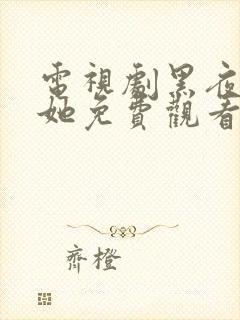 電視劇黑夜
她免費觀看
齊橙